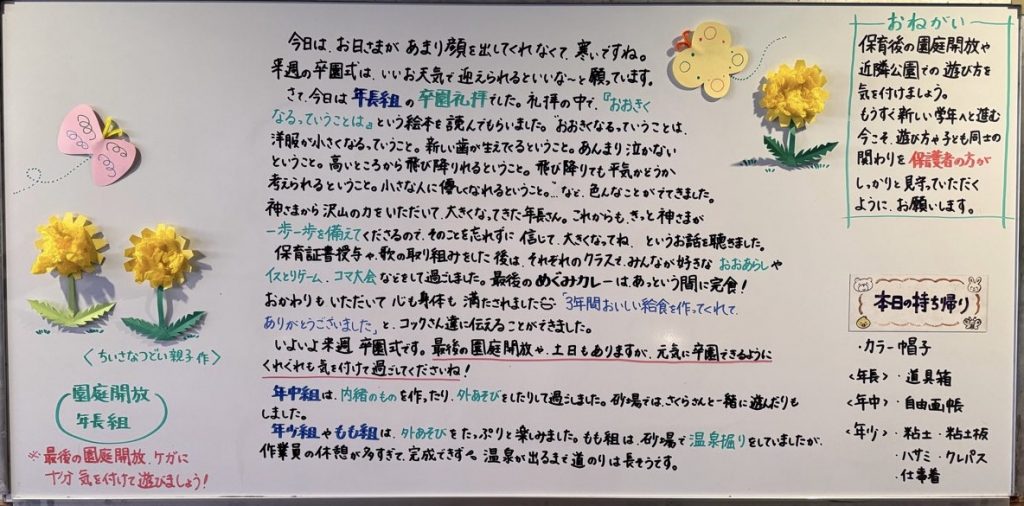 今日は、お日さまが あまり顔を出してくれなくて、寒いですね。
来週の卒園式は、いいお天気で 迎えられるといいな〜と 願っています。
さて、今日は 年長組 の 卒園礼拝でした。礼拝の中で、『おおきく
なるっていうことは』という絵本を 読んでもらいました。"おおきくなるっていうことは、
洋服が小さくなるってこと。新しい歯が生えてくるということ。あんまり泣かない
ということ。高いところから飛び降りれるということ。飛び降りても平気かどうか
考えられるということ。小さな人に優しくなれるということ。"…など、色んなことがでてきました。
神さまから 沢山の力をいただいて、大きくなってきた年長さん。これからも、きっと神さまが
一歩一歩を備えてくださるので、そのことを忘れずに 信じて、大きくなってね、というお話を聴きました。
保育証書授与や、歌の取り組みをした 後は、それぞれのクラスで、みんなが好きな おおあらしや
イスとりゲーム、コマ大会 などをして過ごしました。最後の めぐみカレーは、あっという間に完食!
おかわりも いただいて 心も身体も 満たされました 「3年間おいしい給食を作ってくれて、
ありがとうございました」と、コックさん達に伝えることができました。
いよいよ来週 卒園式です。最後の園庭開放や、土日もありますが、元気に卒園できるように
くれぐれも気を付けて過ごしてくださいね!
年中組は、内緒のものを作ったり、外あそびをしたりして過ごしました。砂場では、さくらさんと一緒に遊んだりも
しました。
年少組やもも組は、外あそびを たっぷりと楽しみました。もも組は、砂場で温泉掘りをしていましたが、
作業員の休憩が多すぎて、完成できず 温泉が出るまで道のりは長そうです。
<ちいさなつどい親子作>
園庭開放
年長組
※最後の園庭開放、ケガに
十分 気を付けて遊びましょう!
おねがい
保育後の園庭開放や
近隣公園での遊び方を
気を付けましょう。
もうすぐ新しい学年へと進む
今こそ、遊び方や子ども同士の
関わりを 保護者の方が
しっかりと見守っていただく
ように、お願いします。
本日の持ち帰り
・カラー帽子
<年長>・道具箱
<年中>・自由画帳
<年少>・粘土・粘土板
・ハサミ・クレパス
・仕事着